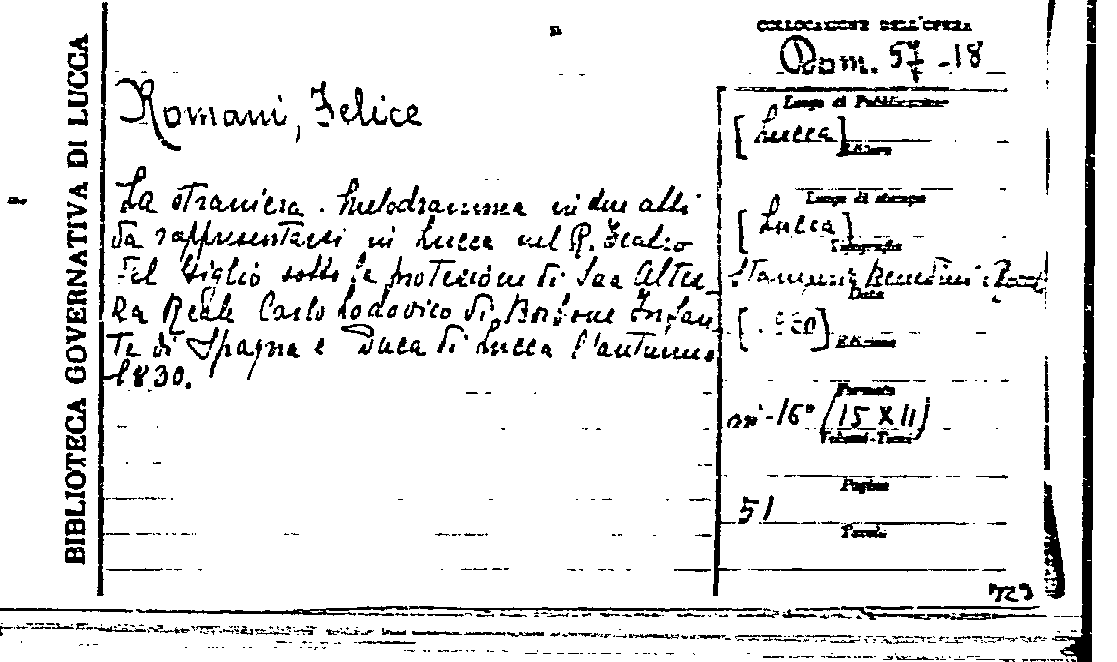 BIBLIOTECA GOVERNATIVA DI LUCCA
COLLOCAZIONE DELL'OPERA
57 -18
Romani, Felice
Luogo di Pubblicazione
[Lucca]
Editore
La straniera. Melodramma in due atti
da rappresentarsi in Lucca nel R. Teatro
del Giglio sotto la protezione di Sua Altez_
za Reale Carlo Lodovico di Borbone Infan_
te di Spagna e Duca di Lucca l'autunno
1830.
Luogo di stampa
[Lucca]
Tipografia
Data
Edizione
Formato
in-16° (15 X 11)
Volumi-Tomi
Pagine
51
Tavole